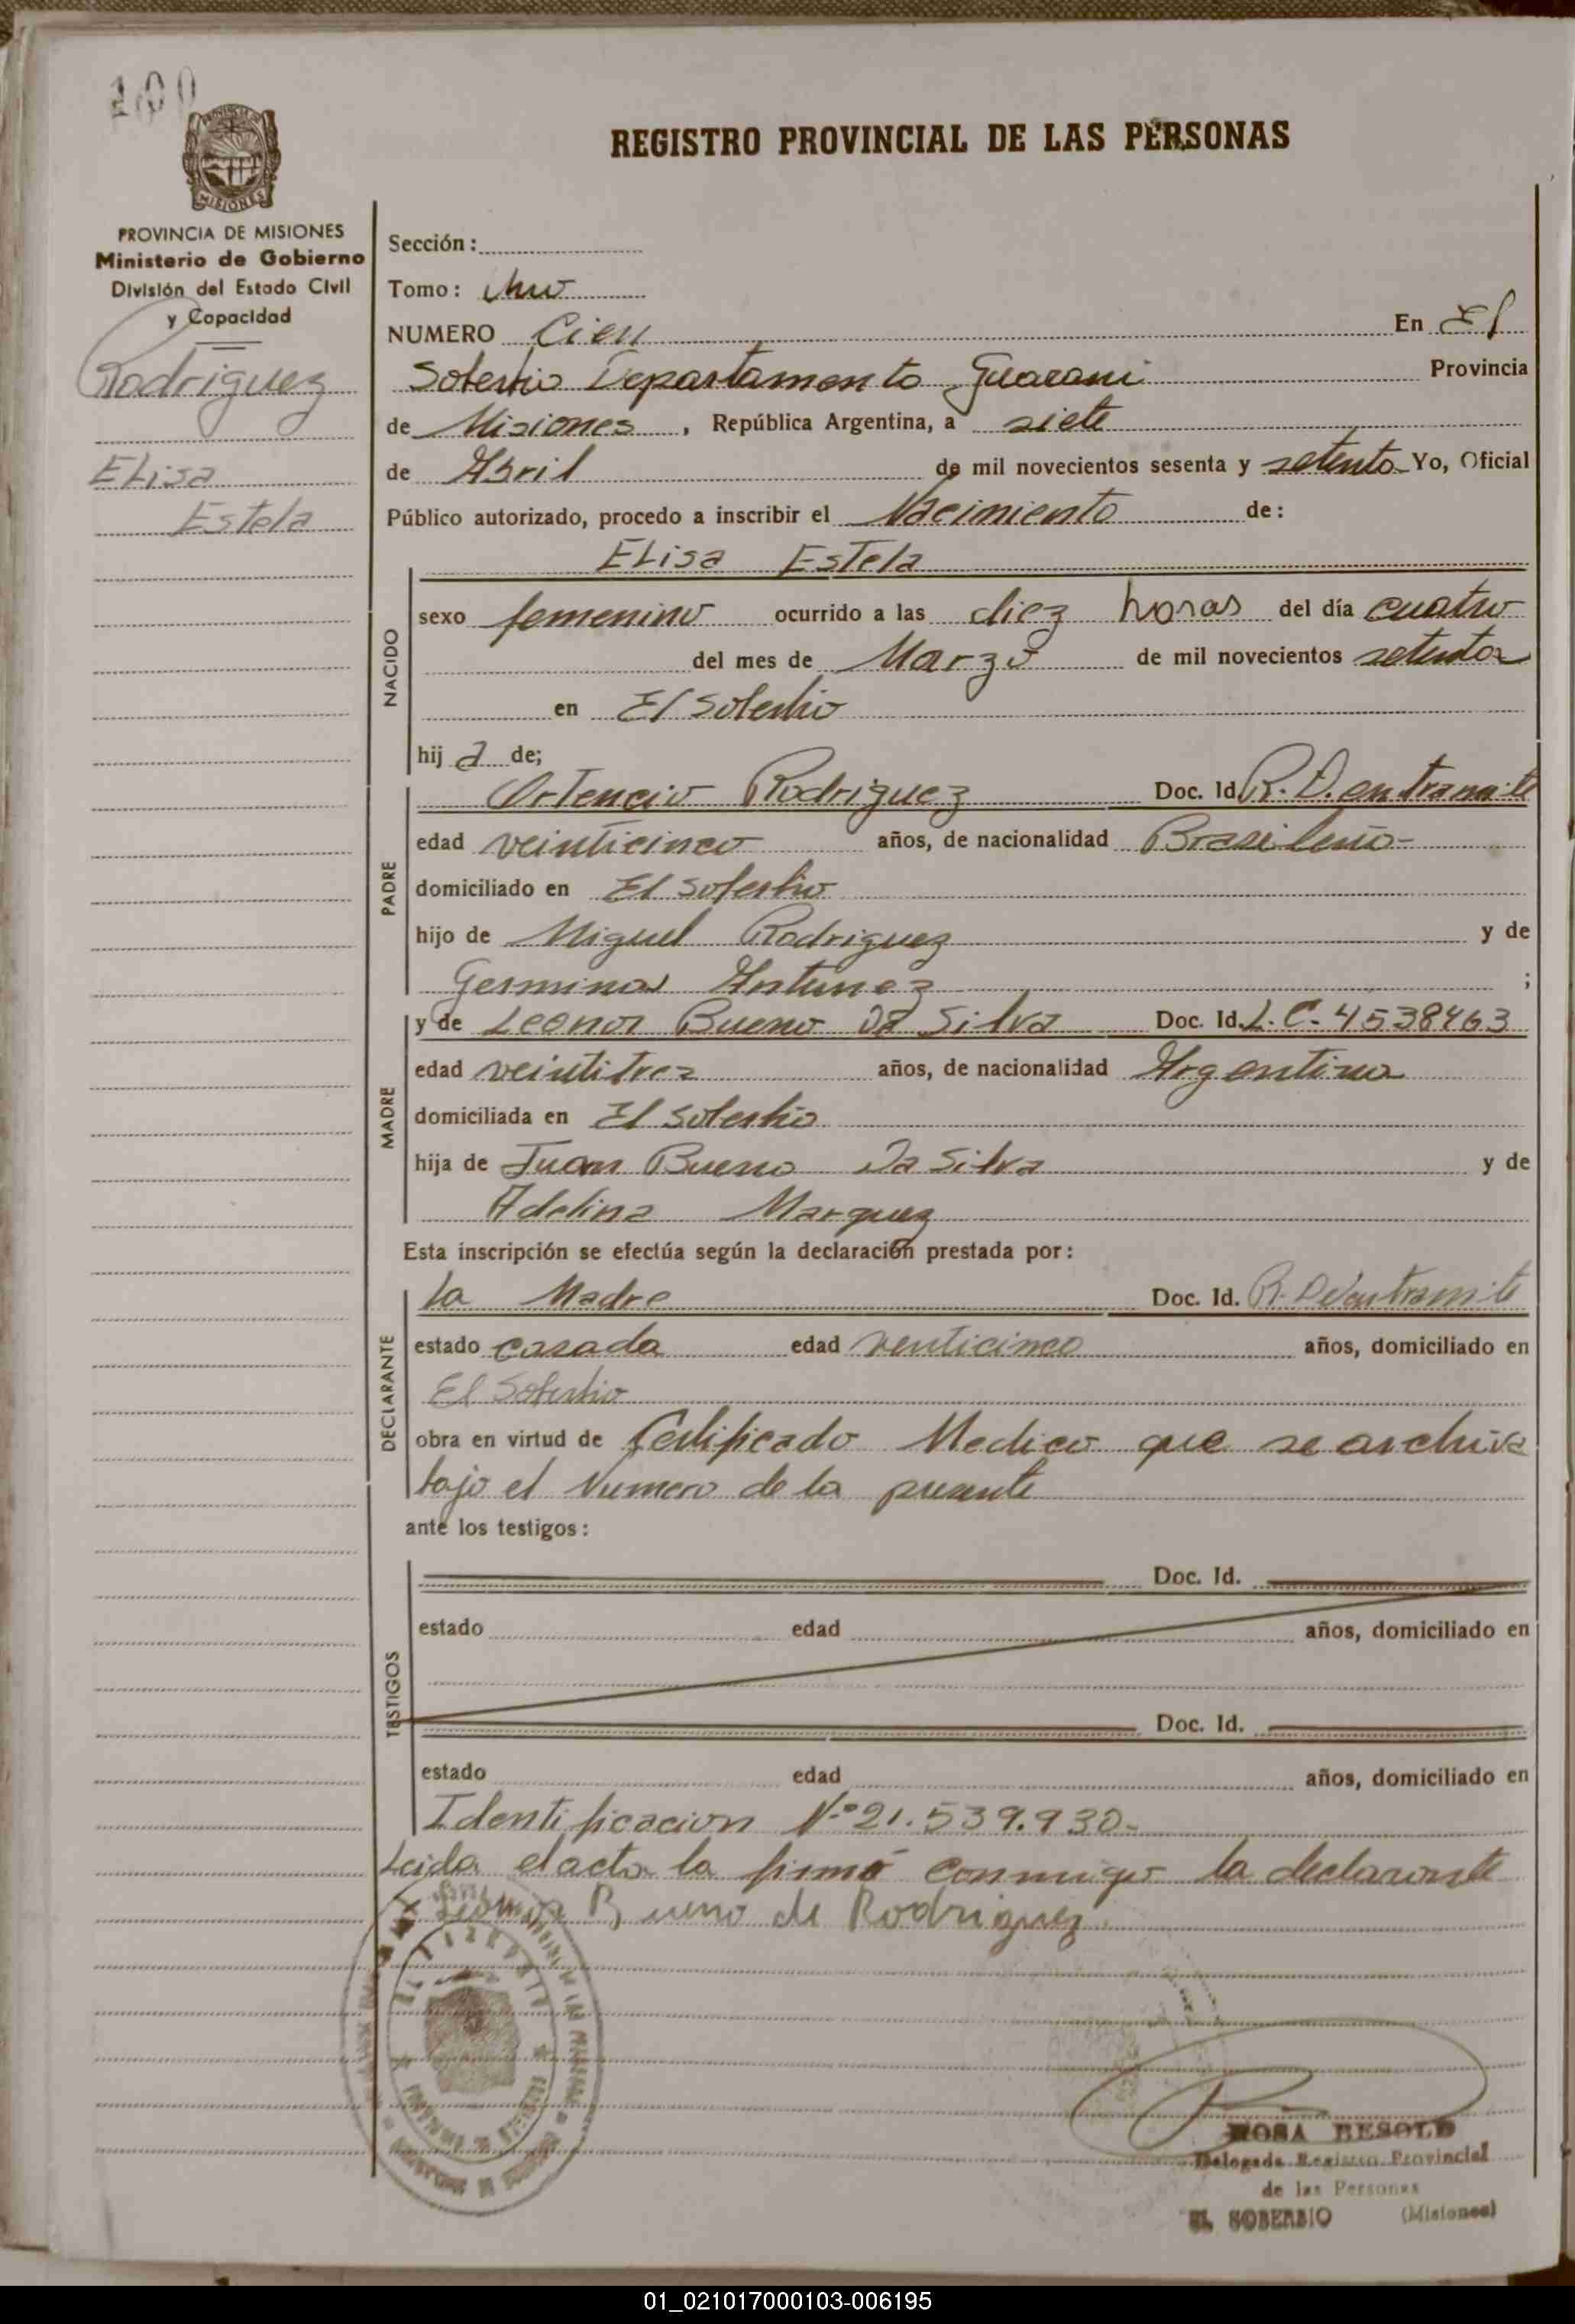 100
PROVINCIA DE MISIONES
Ministerio de Gobierno
División del Estado Civil
y Capacidad
Rodriguez
Elisa
Estela
REGISTRO PROVINCIAL DE LAS PERSONAS
Sección:
Tomo: Uno
NUMERO Cien En El
Soberbio Departamento Guarani Provincia
de Misiones, República Argentina, a siete
de Abril de mil novecientos sesenta y setenta Yo, Oficial
Público autorizado, procedo a inscribir el Nacimiento de:
Elisa Estela
NACIDO
sexo femenino ocurrido a las diez horas del día cuatro
del mes de Marzo de mil novecientos setenta
en El Soberbio
hij a de;
PADRE
Ortencio Rodriguez Doc. Id. R.D. en tramite
edad veinticinco años, de nacionalidad Brasileño-
domiciliado en El Soberbio
hijo de Miguel Rodriguez y de
Germina Antunez ;
MADRE
y de Leonor Bueno Da Silva Doc. Id. L.C. 4538463
edad veintitrez años, de nacionalidad Argentina
domiciliada en El Soberbio
hija de Juan Bueno Da Silva y de
Adelina Marquez
Esta inscripción se efectúa según la declaración prestada por:
DECLARANTE
La Madre Doc. Id. R. D. en tramite
estado casada edad venticinco años, domiciliado en
El Soberbio
obra en virtud de Certificado Medico que se archiva
bajo el Numero de la presente
ante los testigos:
TESTIGOS
Doc. Id.
estado edad años, domiciliado en
Doc. Id.
estado edad años, domiciliado en
Identificacion Nº 21.539.930-
Leida el acta la firmó conmigo la declarante
Leonor Bueno de Rodriguez.
ROSA BESOLD
Delegada Registro Provincial
de las Personas
EL SOBERBIO (Misiones)
01_021017000103-006195